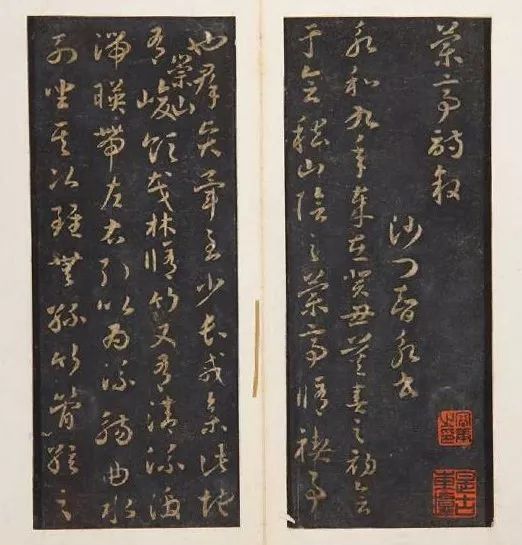 蘭亭詩敘
沙門智永書
永和九年歲在癸丑暮春之初會
于會稽山陰之蘭亭脩禊事
也羣賢畢至少長咸集此地
有崇山峻領茂林脩竹又有清流激
湍暎帶左右引以為流觴曲水
列坐其次雖無絲竹管絃之